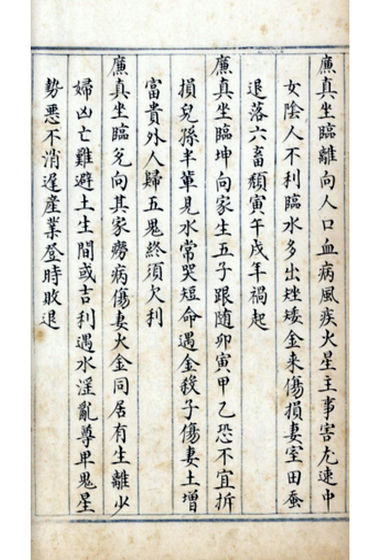 廉真坐臨離向人口血病風疾火星主事害尤速中
女陰人不利臨水多出矬矮金来傷損妻室田蚕
退落六畜頽寅午戌年禍起
廉真坐臨坤向家生五子跟随卯寅甲乙恐不宜拆
損兒孫半輩見水常哭短命遇金殺子傷妻土增
富貴外人歸五鬼終須欠利
廉真坐臨兌向其家勞病傷妻火金同居有生離少
婦凶亡難避土生間或吉利遇水淫亂尊卑鬼星
勢悪不消遅産業登時敗退